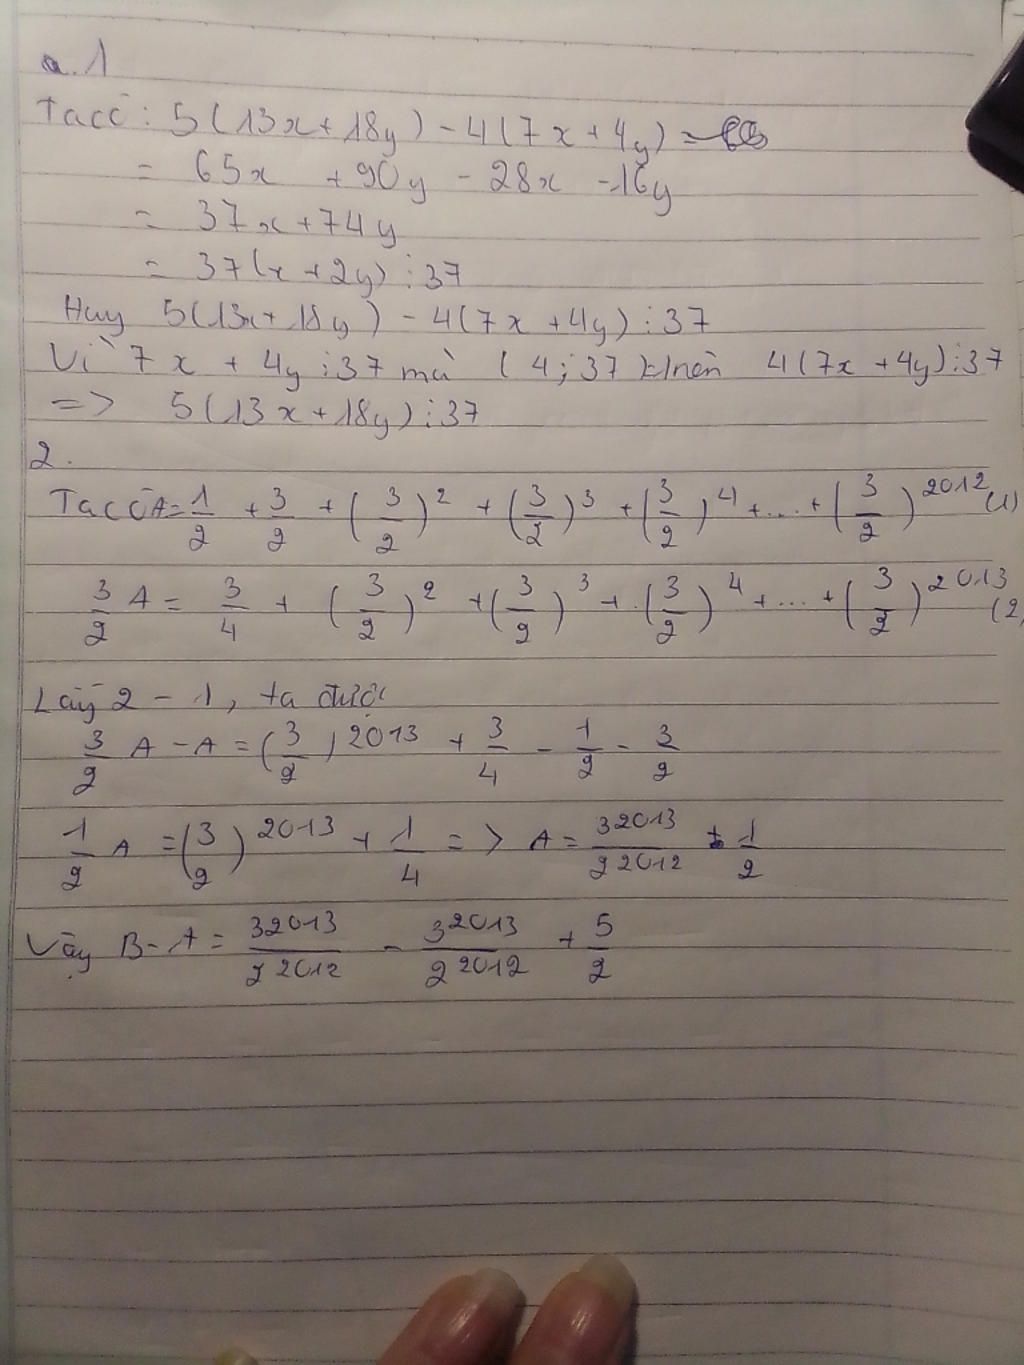 a.1
Ta có: 5(13x+18y) - 4(7x+4y) =
= 65x + 90y - 28x - 16y
= 37x + 74y
= 37(x+2y) ⋮ 37
Hay 5(13x+18y) - 4(7x+4y) ⋮ 37
Vì 7x + 4y ⋮ 37 mà (4; 37)=1 nên 4(7x+4y) ⋮ 37
=> 5(13x+18y) ⋮ 37
2.
Ta có A = 1/2 + 3/2 + (3/2)^2 + (3/2)^3 + (3/2)^4 + ... + (3/2)^2012 (1)
3/2 A = 3/4 + (3/2)^2 + (3/2)^3 + (3/2)^4 + ... + (3/2)^2013 (2)
Lấy 2 - 1, ta được
3/2 A - A = (3/2)^2013 + 3/4 - 1/2 - 3/2
1/2 A = (3/2)^2013 + 1/4 => A = 3^2013/2^2012 + 1/2
Vậy B - A = 3^2013/2^2012 - 3^2013/2^2012 + 5/2